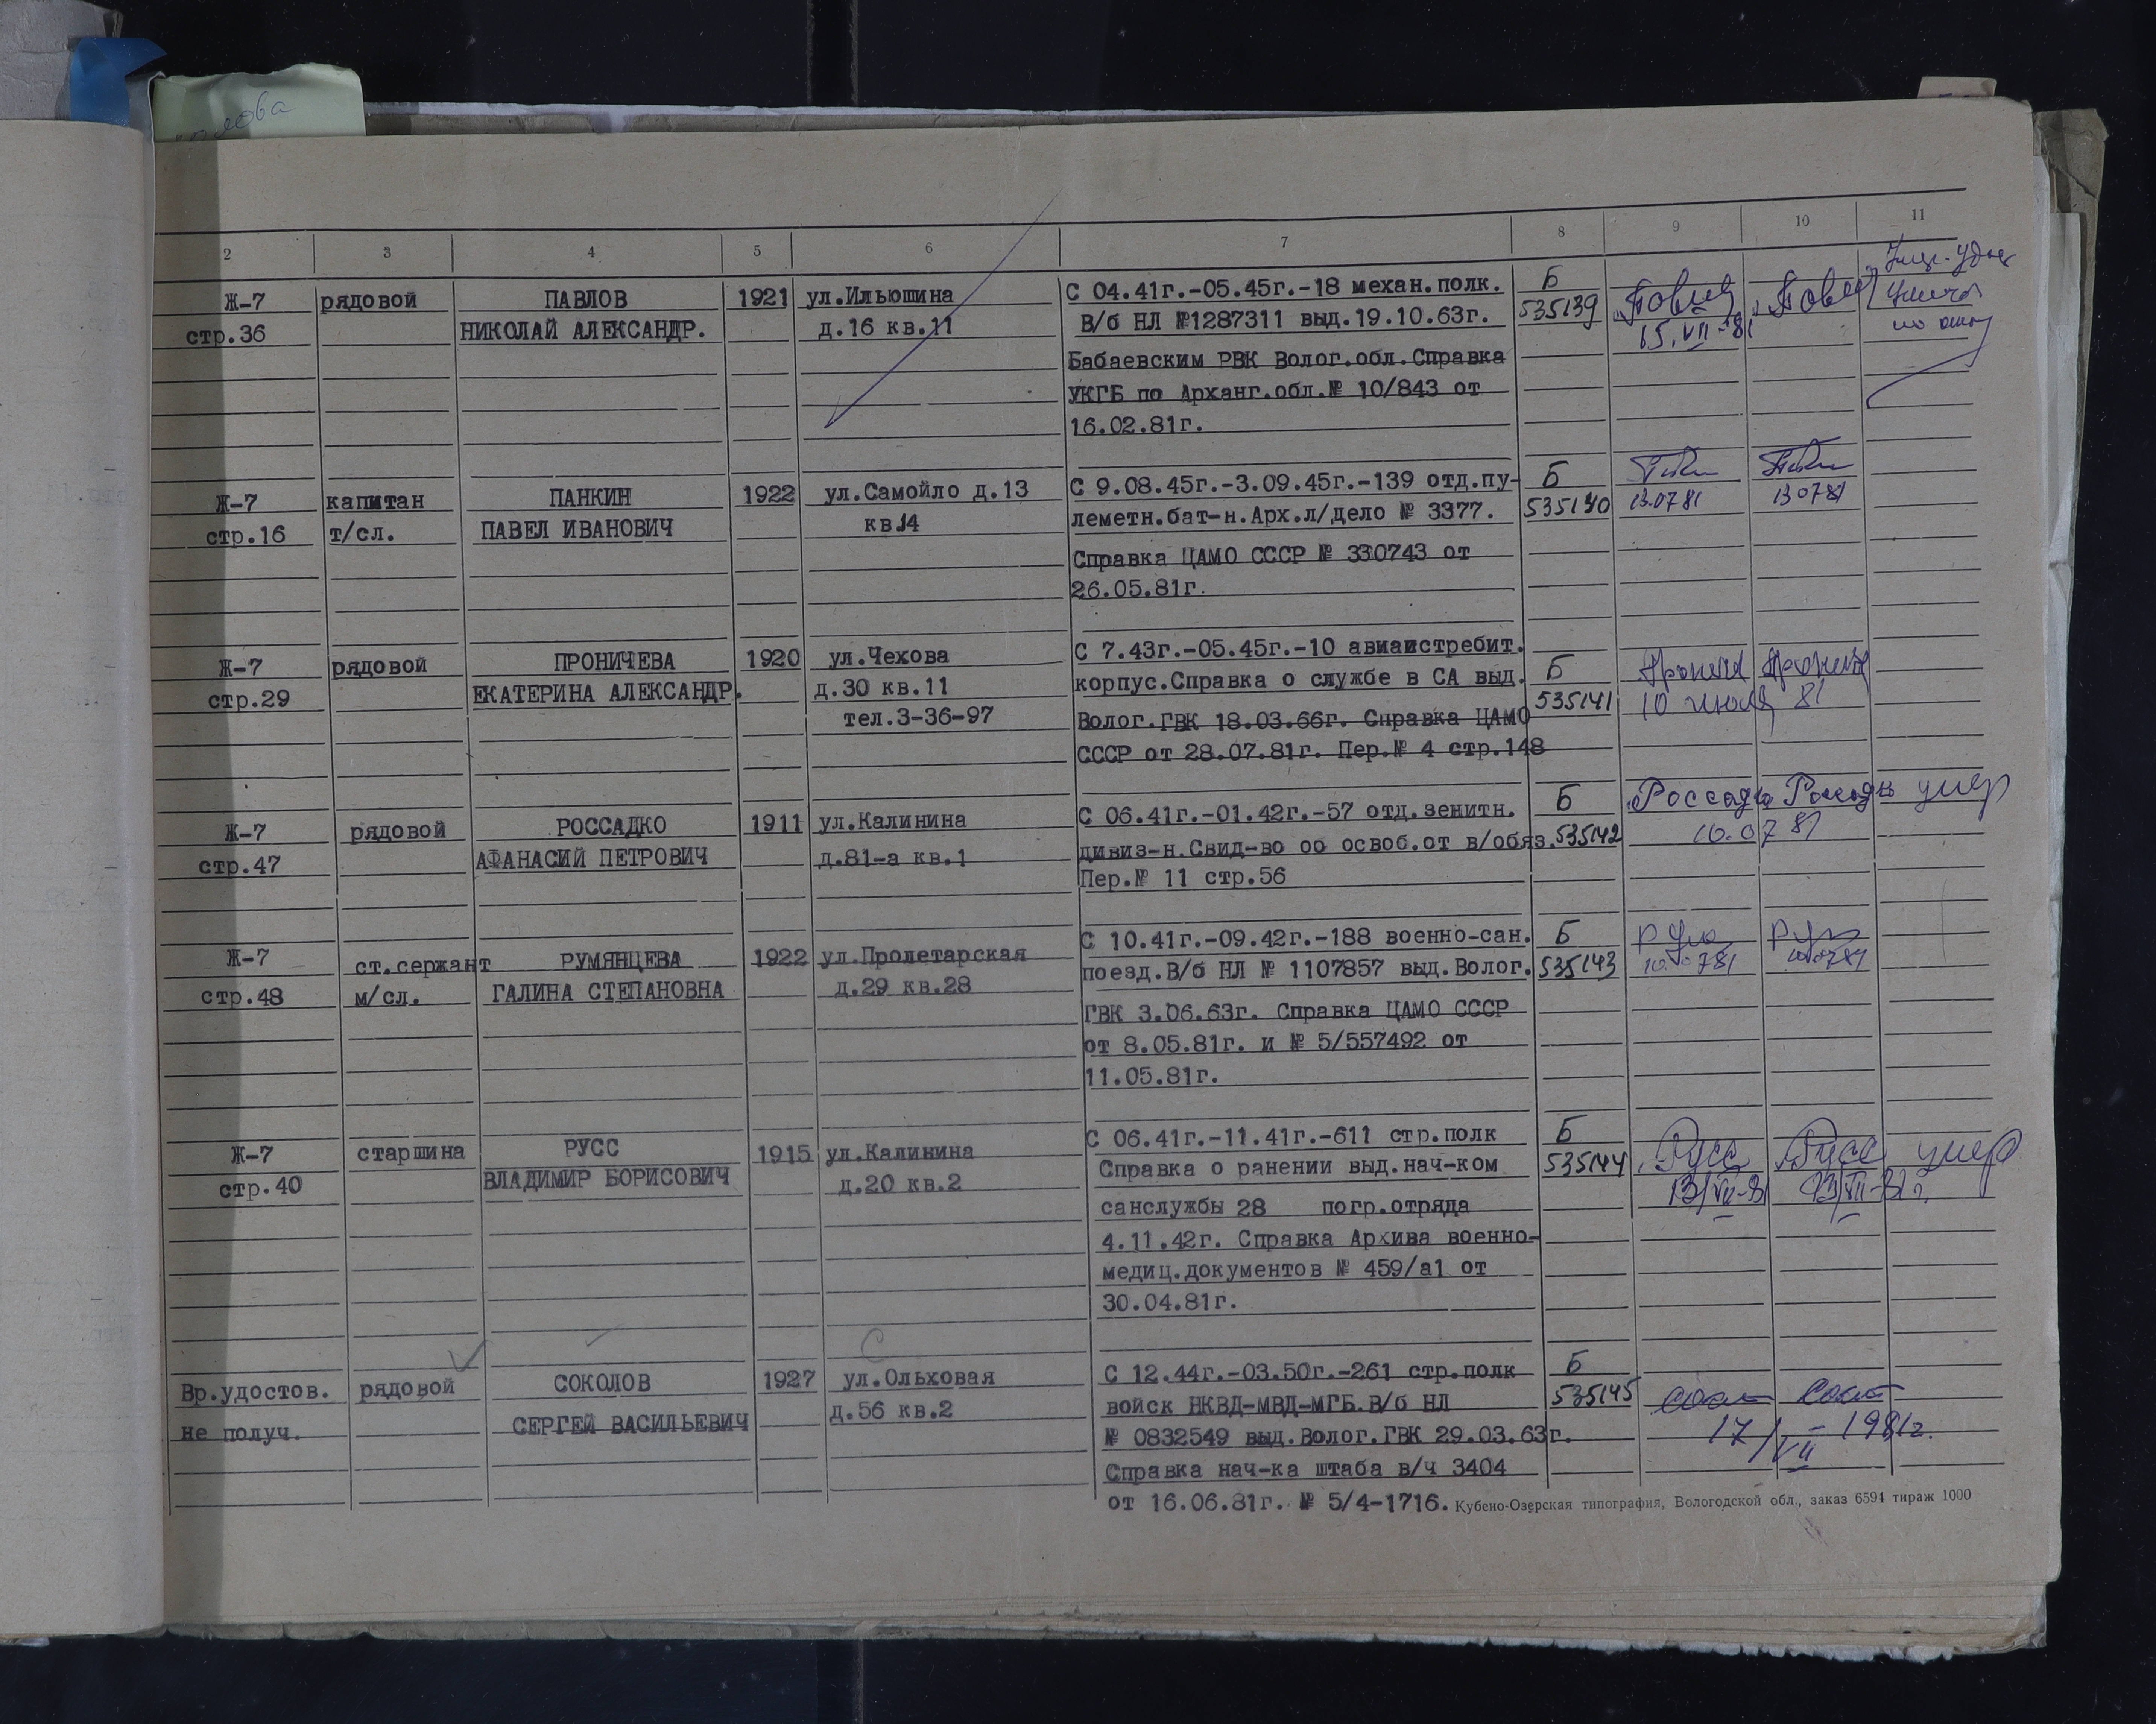 2 3 4 5 6 7 8 9 10 11
Ж-7 рядовой ПАВЛОВ 1921 ул.Ильюшина С 04.41г.-05.45г.-18 механ.полк. Б
стр.36 НИКОЛАЙ АЛЕКСАНДР. д.16 кв.11 В/б НЛ №1287311 выд.19.10.63г. 535139 15.VII-81
Бабаевским РВК Волог.обл.Справка
УКГБ по Арханг.обл.№ 10/843 от
16.02.81г.
Ж-7 капитан ПАНКИН 1922 ул.Самойло д.13 С 9.08.45г.-3.09.45г.-139 отд.пу- Б
стр.16 т/сл. ПАВЕЛ ИВАНОВИЧ кв.14 леметн.бат-н.Арх.л/дело № 3377. 535140 13.07 81 13 07 81
Справка ЦАМО СССР № 330743 от
26.05.81г.
Ж-7 рядовой ПРОНИЧЕВА 1920 ул.Чехова С 7.43г.-05.45г.-10 авиаистребит.
стр.29 ЕКАТЕРИНА АЛЕКСАНДР. д.30 кв.11 корпус.Справка о службе в СА выд. Б
тел.3-36-97 Волог.ГВК 18.03.66г. Справка ЦАМО 535141 10 июля 81
СССР от 28.07.81г. Пер.№ 4 стр.148
Ж-7 рядовой РОССАДКО 1911 ул.Калинина С 06.41г.-01.42г.-57 отд.зенитн. Б умер
стр.47 АФАНАСИЙ ПЕТРОВИЧ д.81-а кв.1 дивиз-н.Свид-во оо освоб.от в/обяз. 535142 10.07 81
Пер.№ 11 стр.56
Ж-7 ст.сержант РУМЯНЦЕВА 1922 ул.Пролетарская С 10.41г.-09.42г.-188 военно-сан. Б
стр.48 м/сл. ГАЛИНА СТЕПАНОВНА д.29 кв.28 поезд.В/б НЛ № 1107857 выд.Волог. 535143 10.0781 100781
ГВК 3.06.63г. Справка ЦАМО СССР
от 8.05.81г. и № 5/557492 от
11.05.81г.
Ж-7 старшина РУСС 1915 ул.Калинина С 06.41г.-11.41г.-611 стр.полк Б Русс Русс умер
стр.40 ВЛАДИМИР БОРИСОВИЧ д.20 кв.2 Справка о ранении выд.нач-ком 535144 13/VII-81 13/VII-81г.
санслужбы 28 погр.отряда
4.11.42г. Справка Архива военно-
медиц.документов № 459/а1 от
30.04.81г.
С
Вр.удостов. рядовой СОКОЛОВ 1927 ул.Ольховая С 12.44г.-03.50г.-261 стр.полк Б
не получ. СЕРГЕЙ ВАСИЛЬЕВИЧ д.56 кв.2 войск НКВД-МВД-МГБ.В/б НЛ 535145
№ 0832549 выд.Волог.ГВК 29.03.63г. 17/VII-1981г.
Справка нач-ка штаба в/ч 3404
от 16.06.81г. № 5/4-1716. Кубено-Озерская типография, Вологодской обл., заказ 6594 тираж 1000